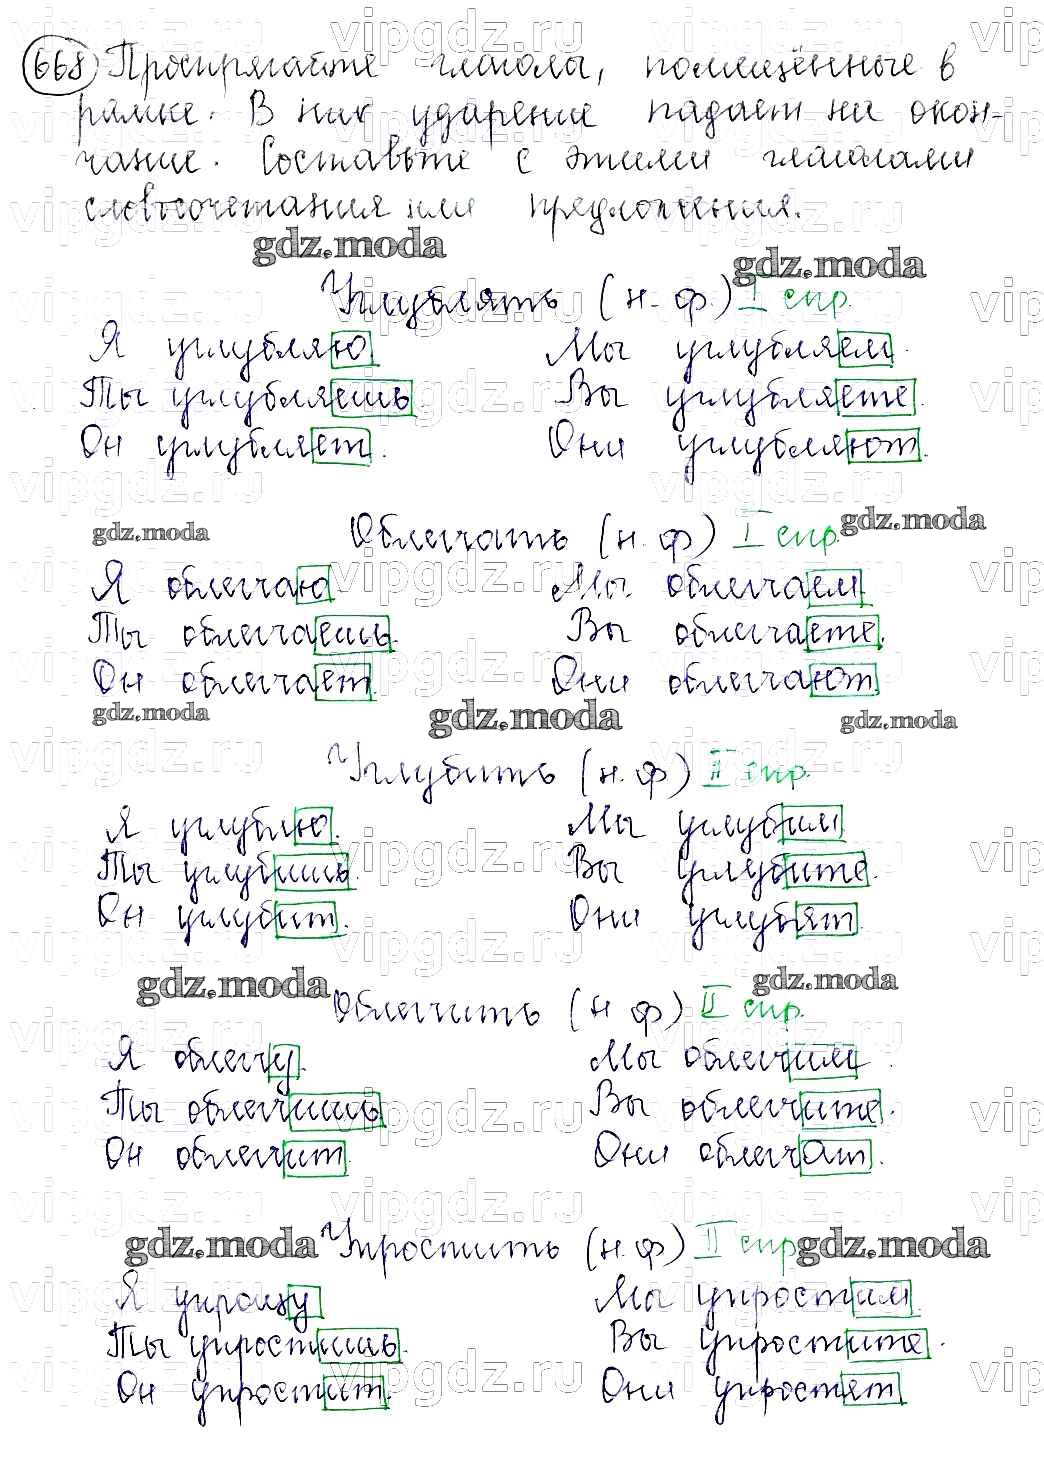 668 Проспрягайте глаголы, помещённые в
рамке. В них ударение падает на окон-
чание. Составьте с этими глаголами
словосочетания или предложения.
gdz.moda gdz.moda
Углублять (н. ф.) I спр.
Я углубляю Мы углубляем.
Ты углубляешь Вы углубляете.
Он углубляет. Они углубляют.
gdz.moda Облегчать (н. ф) I спр. gdz.moda
Я облегчаю Мы облегчаем
Ты облегчаешь. Вы облегчаете.
Он облегчает. Они облегчают
gdz.moda gdz.moda gdz.moda
Углубить (н. ф) II спр.
Я углублю. Мы углубим
Ты углубишь. Вы углубите.
Он углубит. Они углубят
gdz.moda Облегчить (н ф) II спр. gdz.moda
Я облегчу. Мы облегчим.
Ты облегчишь Вы облегчите.
Он облегчит. Они облегчат.
gdz.moda Упростить (н. ф) II спр gdz.moda
Я упрощу Мы упростим.
Ты упростишь. Вы упростите.
Он упростит. Они упростят
vipgdz.ru